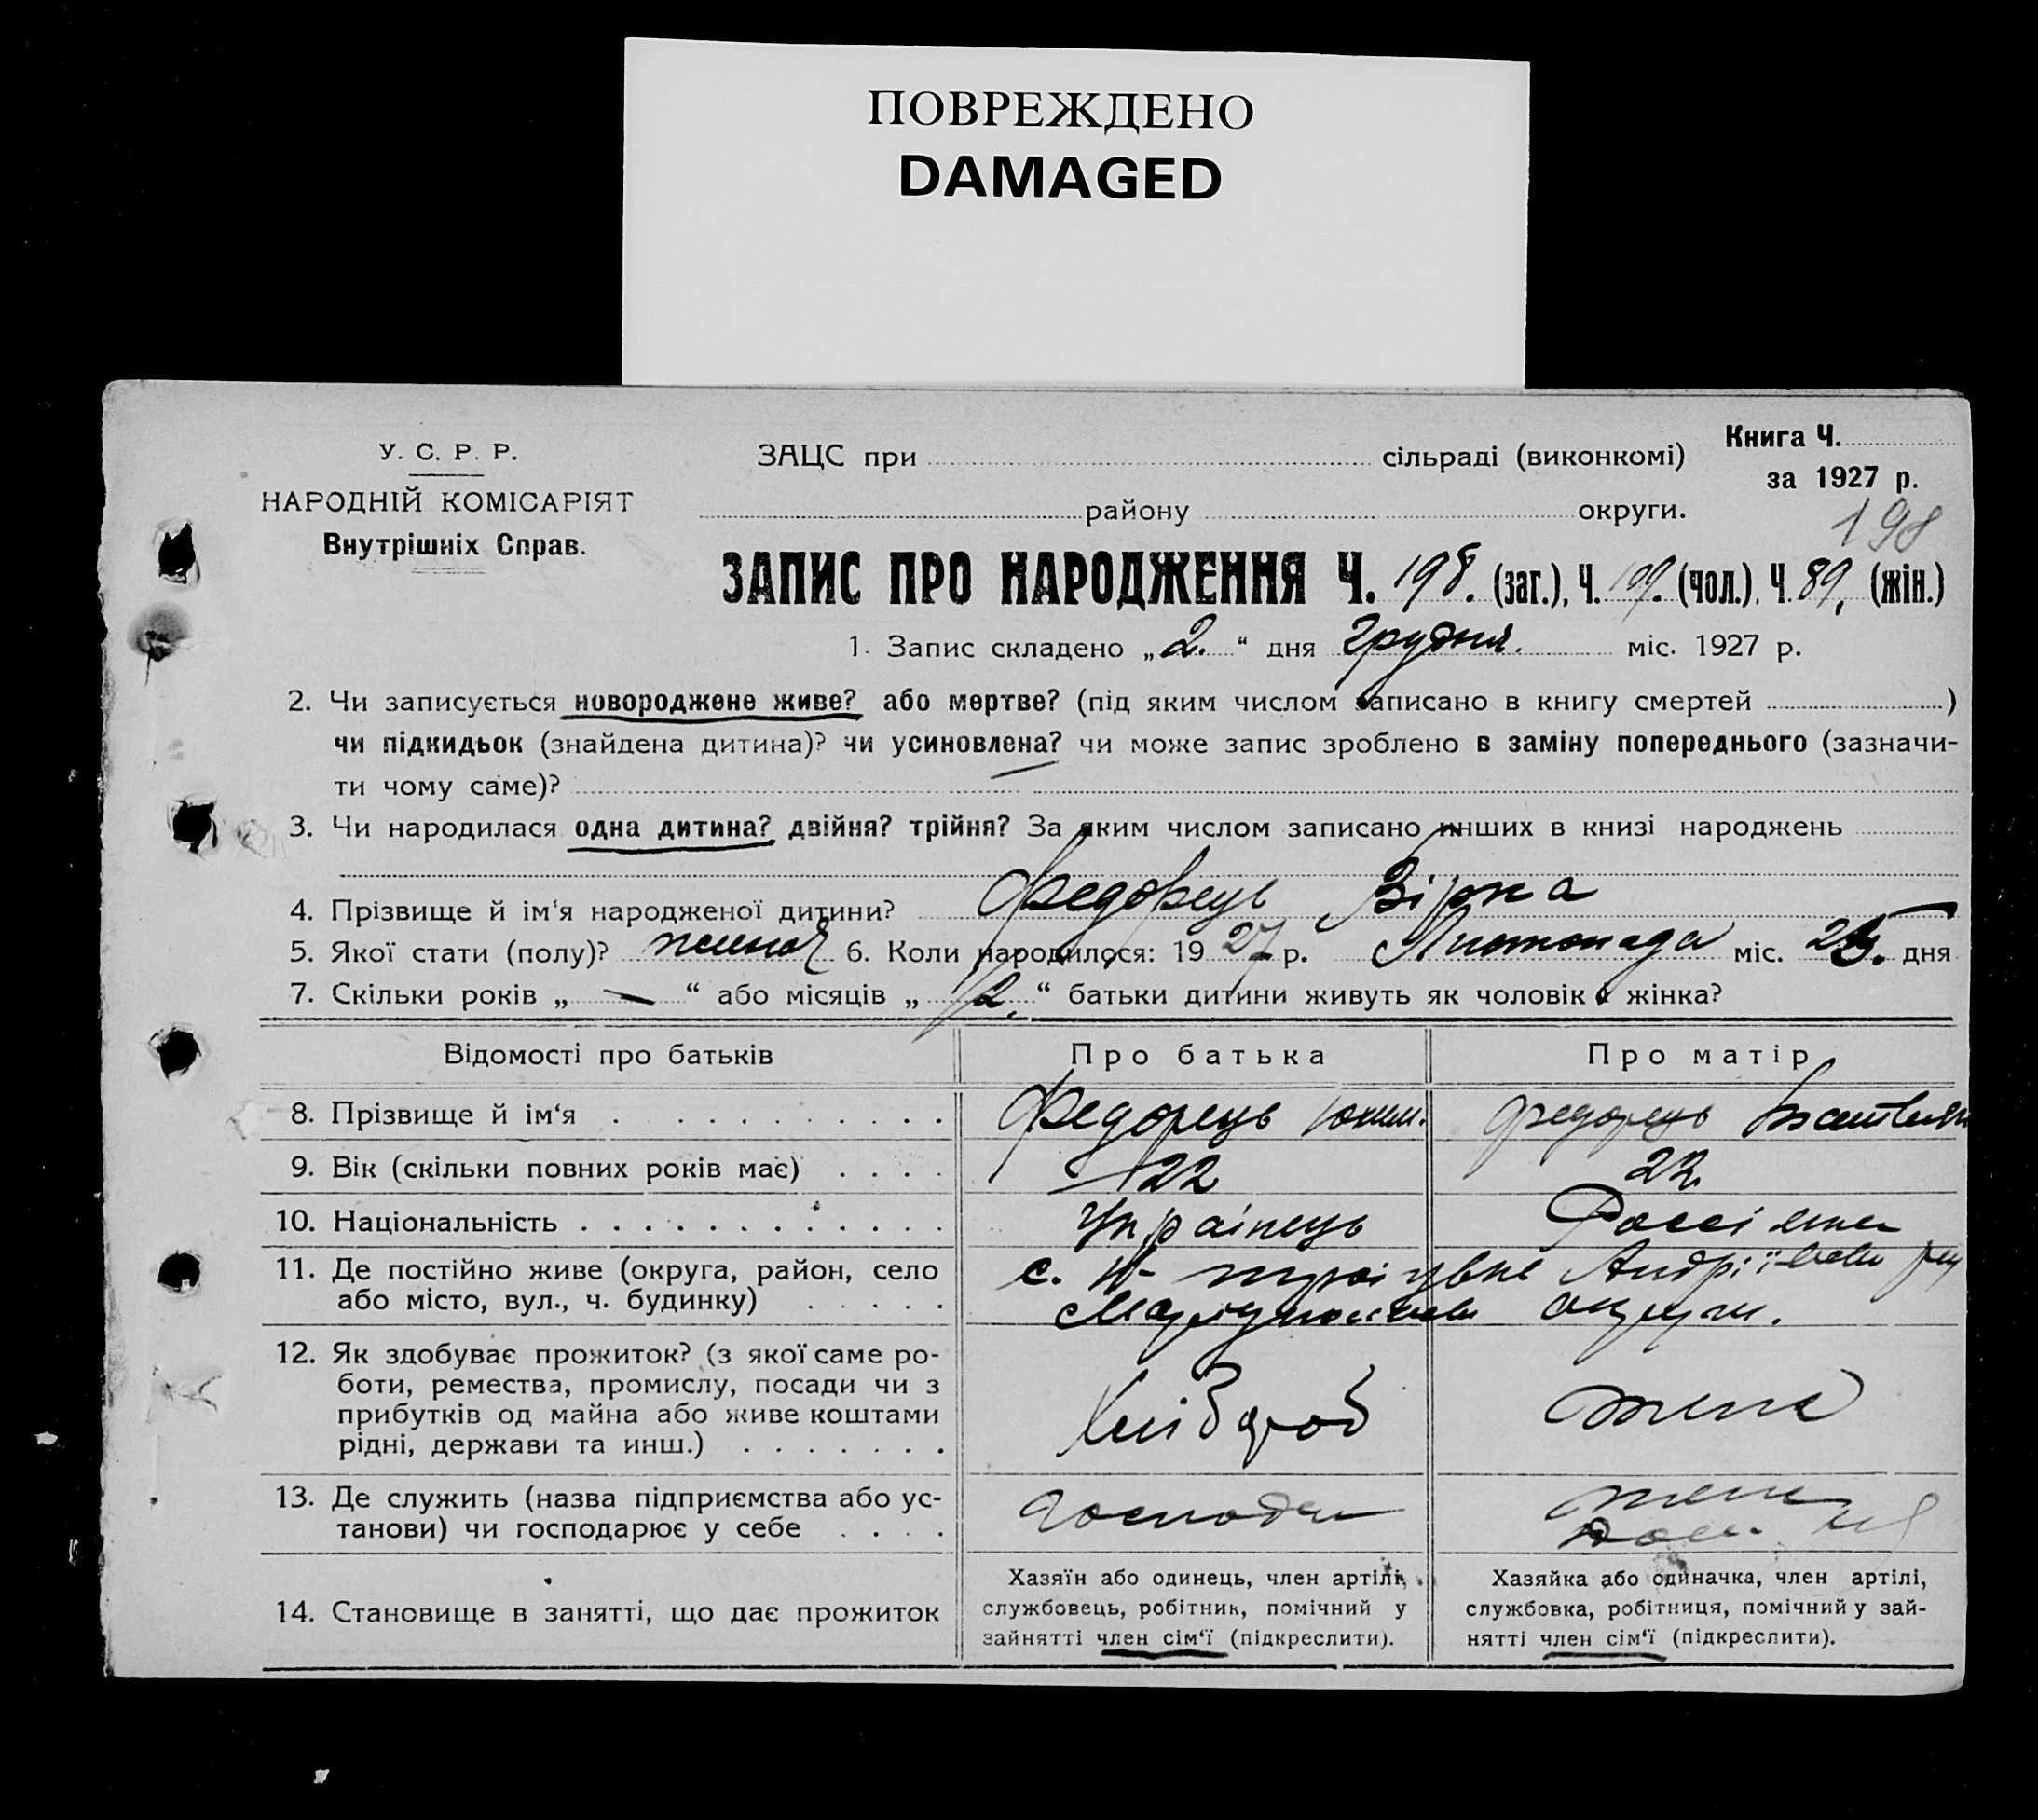 ПОВРЕЖДЕНО
DAMAGED
У. С. Р. Р.
НАРОДНІЙ КОМІСАРІЯТ
Внутрішніх Справ.
ЗАЦС при сільраді (виконкомі)
Книга Ч.
за 1927 р.
району округи.
198
ЗАПИС ПРО НАРОДЖЕННЯ Ч. 198. (заг.), Ч. 109. (чол.), Ч. 89. (жін.)
1. Запис складено „2.“ дня Грудня. міс. 1927 р.
2. Чи записується новороджене живе? або мертве? (під яким числом записано в книгу смертей )
чи підкидьок (знайдена дитина)? чи усиновлена? чи може запис зроблено в заміну попереднього (зазначи-
ти чому саме)?
3. Чи народилася одна дитина? двійня? трійня? За яким числом записано инших в книзі народжень
4. Прізвище й ім‘я народженої дитини? Федорець Зірка
5. Якої стати (полу)? 6. Коли народилося: 1927 р. Листопада міс. дня
7. Скільки років „—“ або місяців „“ батьки дитини живуть як чоловік й жінка?
Відомості про батьків Про батька Про матір
8. Прізвище й ім‘я Федорець Юхим. Федорець
9. Вік (скільки повних років має) 22 22
10. Національність Українець Россіянка
11. Де постійно живе (округа, район, село с.
або місто, вул., ч. будинку) Маріупольської округи.
12. Як здобуває прожиток? (з якої саме ро-
боти, ремества, промислу, посади чи з
прибутків од майна або живе коштами
рідні, держави та инш.) Хлібороб
13. Де служить (назва підприємства або ус-
танови) чи господарює у себе
14. Становище в занятті, що дає прожиток
Хазяїн або одинець, член артілі,
службовець, робітник, помічний у
зайнятті член сім‘ї (підкреслити).
Хазяйка або одиначка, член артілі,
службовка, робітниця, помічний у зай-
нятті член сім‘ї (підкреслити).